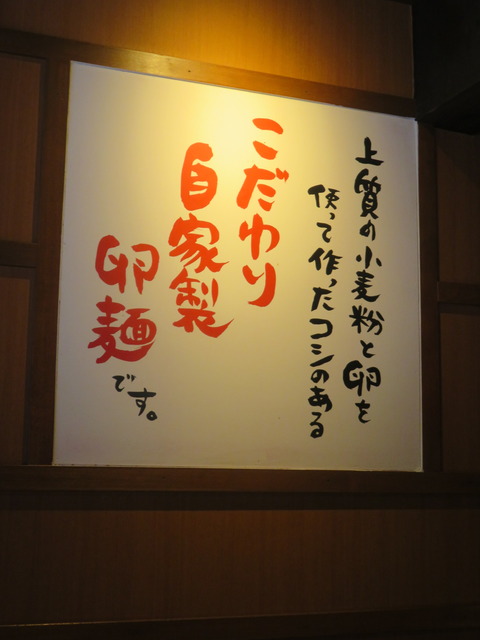 上質の小麦粉と卵を
使って作ったコシのある
こだわり
自家製
卵麺
です。